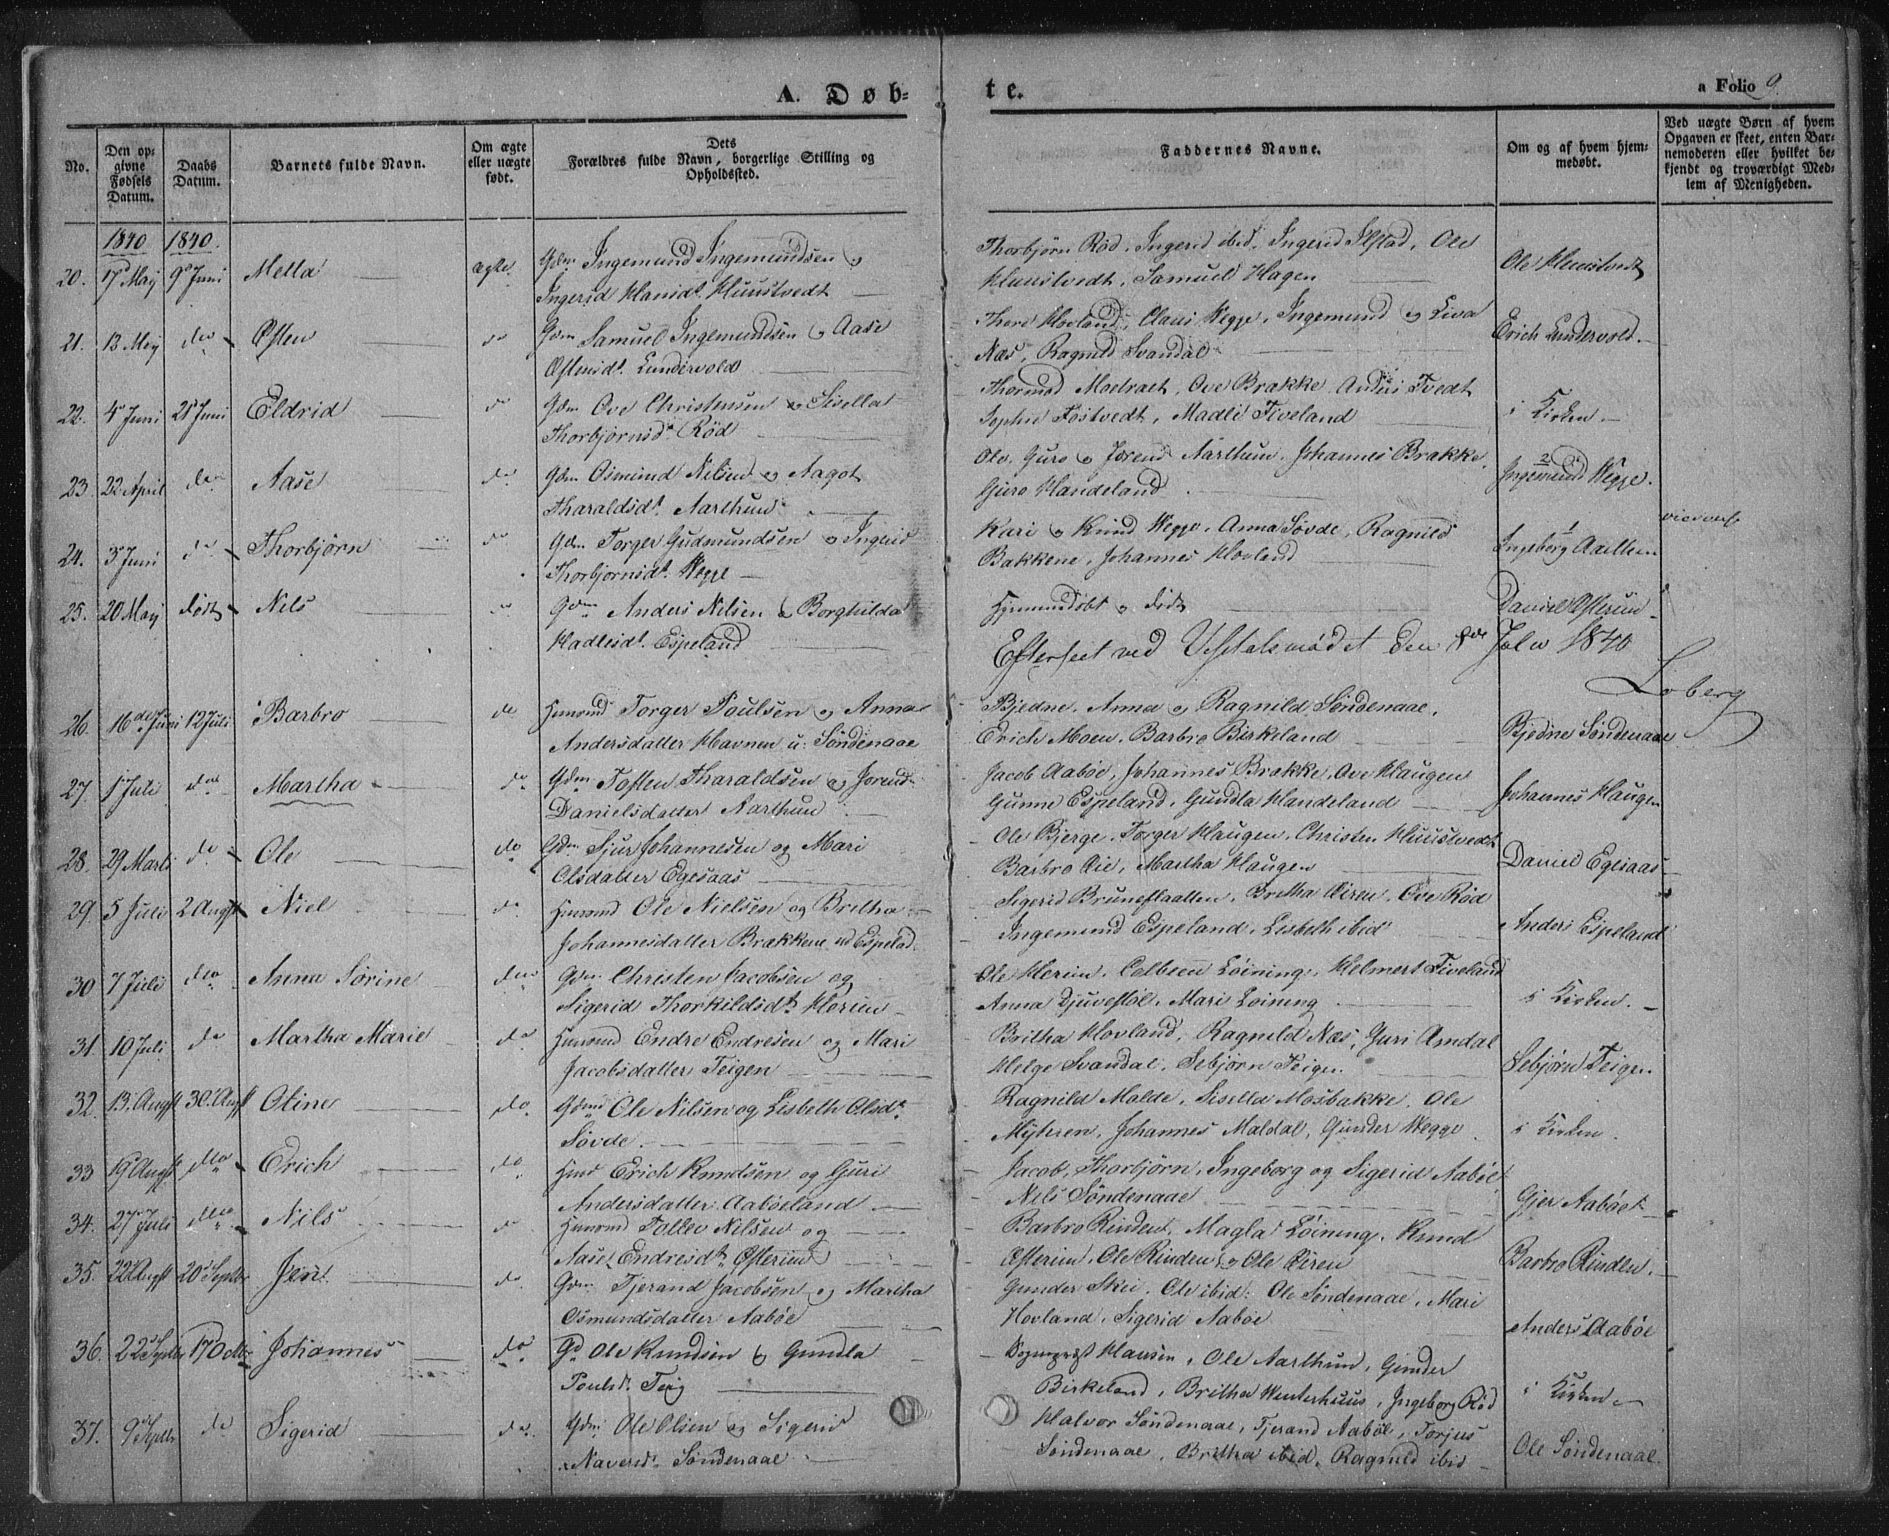 A. Døb-
te.
a Folio 9.
No.
Den op-
givne
Fødsels
Datum.
Daabs
Datum.
Barnets fulde Navn.
Om ægte
eller uægte
født.
Dets
Forældres fulde Navn, borgerlige Stilling og
Opholdssted.
Faddernes Navne.
Om og af hvem hjem-
medøbt.
Ved uægte Børn af hvem
Opgaven er skeet, enten Bar-
nemoderen eller hvilket be-
kjendt og troværdigt Med-
lem af Menigheden.
1840 1840.
20. 17 May 9 Juni Metta ægte. Gdm Ingemund Ingemundsen og
Ingerid Hansdt. Huustvedt
Thorbjørn Rød, Ingerid ibid, Ingerid Ilstad, Ole
Huustvedt, Samuel Hagen
Ole Huustvedt
21. 13 May do Østen do Gdm Samuel Ingemundsen og Aase
Østensdt. Lundervold
Thore Hovland, Claus Wegge, Ingemund og Liva
Næs, Ragnild Svandal
Erich Lundervold.
22. 4 Juni 21 Juni Eldrid do Gdm Ove Christensen og Sisella
Thorbjørnsd. Rød
Thormod Moetraet, Ove Brakke, Tvedt
Sophie Tostvedt, Madli Tveland
i Kirken
23. 22 April do Aase do Gdm Osmund Nilsen og Aagot
Tharaldsdt. Aarthun
Ole, Guro og Jorend Aarthun, Johannes Brakke,
Guro Handeland
Ingemund Wegge.
24. 3 Juni do Thorbjørn do Gdm Torger Gudmundsen og Ingerid
Thorbjørnsdt. Wegge
Kari og Knud Wegge, Anna Søvde, Ragnild
Bakkene, Johannes Hovland
Ingeborg
25. 20 May død Nils do Gdm Anders Nilsen og Borghilda
Hadlesdt. Espeland
Hjemmedøbt og død
Daniel Østerim
Efterseet ved Visitatsmødet den 8de Julii 1840
Loberg
26. 16de Juni 12 Juli Barbro do Huusmd Torger Poulsen og Anna
Andersdatter Havnen u. Søndenaae
Bjedne, Anna og Ragnild Søndenaae,
Erich Moen, Barbro Birkeland
Bjedne Søndenaae
27. 1 Juli do Martha do Gdm Tosten Tharaldsen og Jorend
Danielsdatter Aarthun
Jacob Aabøe, Johannes Brakke, Ove Haugen
Gunne Espeland, Gundla Handeland
Johannes Haugen
28. 29 Marts do Ole do Gdm. Sjur Johannesen og Mari
Olsdatter Egesaas
Ole Bjerge, Torger Haugen, Christen Huustvedt
Barbro Øie, Martha Haugen
Daniel Egesaas
29. 5 Juli 2 Augst Niel do. Huusmd Ole Nielsen og Britha
Johannesdatter Brækkene ud Espelad
Sigerid Bruneflaatten, Britha Øiren, Ove Rød
Ingemund Espeland, Lisbeth ibid
Anders Espeland
30 7 Juli do Anna Sørine do Gdm. Christen Jacobsen og
Sigerid Thorkildsdt. Herim
Ole Herim, Colbeen Løining, Helmert Tiveland
Anna Djuvestøl, Mari Løining
i Kirken.
31. 10 Juli do Martha Marie do Huusmd Endre Endresen og Mari
Jacobsdatter Teigen
Britha Hovland, Ragnild Næs, Guri Amdal
Helge Svandal, Sebjørn Teigen
Sebjørn Teigen
32. 13. Augst 30. Augst Oline do. Gdm Ole Nilsen og Lisbeth Olsdt.
Søvde.
Ragnild Molde, Sisella Mosbakke, Ole
Myhren, Johannes Maldal, Gunder Wegge
i Kirken.
33 19 Augst do Erich do Huusmd Erich Knudsen og Guri
Andersdatter Aabøeland
Jacob, Thorbjørn, Ingeborg og Sigerid Aabøe
Nils Søndenaae
Gjer Aabøe
34. 27 Juli do Nils do Huusmd Tollev Nilsen og
Aase Endresdt. Østerim
Barbro Rinden, Magla Løining, Knud
Østerim, Ole Rinden og Ole Øiren
Barbro Rinden.
35. 22 Augst 20 Septbr Jen do Gdm. Tjerand Jacobsen og Martha
Osmundsdatter Aabøe
Gunder Skei, Ole ibid. Ole Søndenaae, Mari
Hovland, Sigerid Aabøe
Anders Aabøe
36. 22 Septbr 17 Octbr Johannes do Gd Ole Knudsen og Gundla
Poulsdt. Teig
Sogneprest Hansen, Ole Aarthun, Gunder
Birkeland, Britha Winterhuus, Ingeborg Rød
i Kirken
37. 9 Septbr do Sigerid do. Gdm. Ole Olsen og Sigerid
Naversdt. Søndenaae
Halvor Søndenaae, Tjerand Aabøe, Torjus
Søndenaae, Britha ibid, Ragnild ibid
Ole Søndenaae